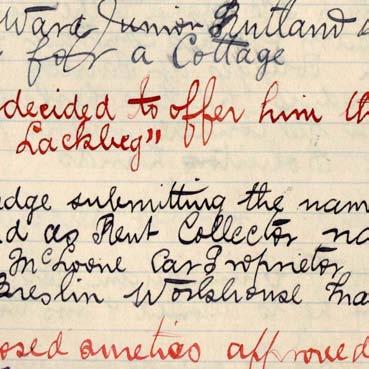 ward Junior Rutland
for a Cottage
decided to offer him th
Lackbeg"
edge submitting the nam
d as Rent Collector na
McLoone Car Proprietor
Breslin Workhouse Ma
osed sureties approved